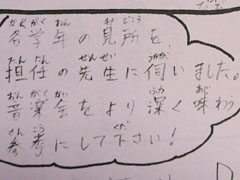 各学年の見所を、
担任の先生に伺いました。
音楽会をより深く味わう
参考にして下さい！